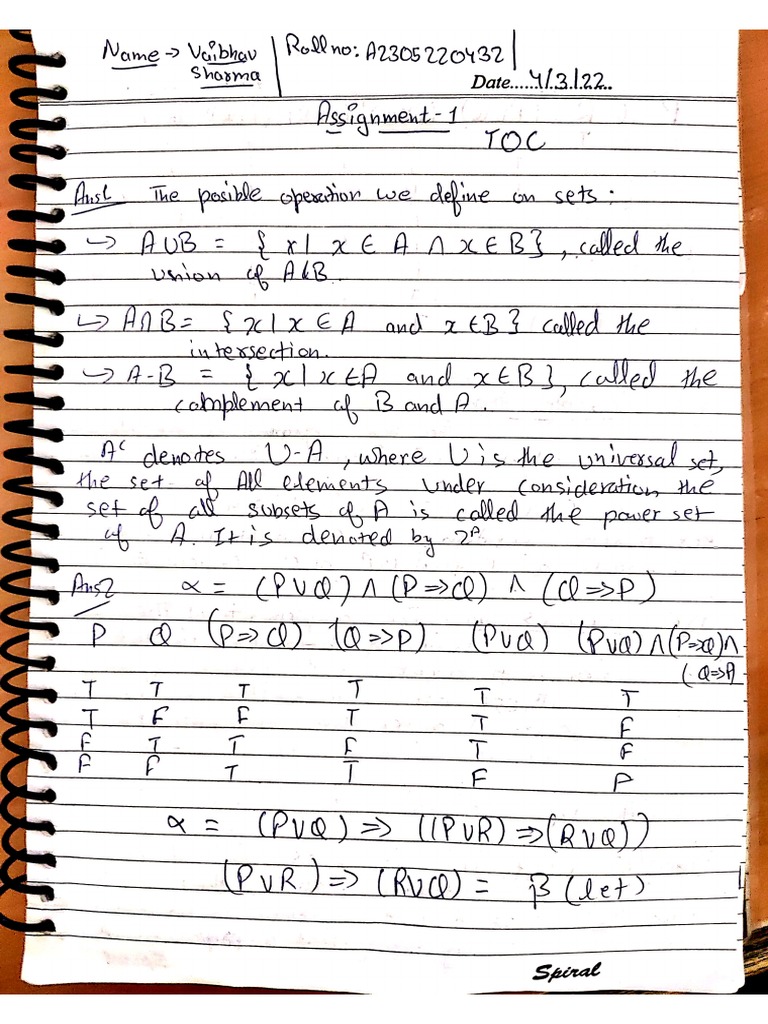 Name → Vaibhav Sharma
Roll no: A2305220432
Date......4/3/22..
Assignment-1
TOC
Ans1 The posible operation we define on sets:
↪ A∪B = { x | x ∈ A ∩ x ∈ B}, called the
union of A & B.
↪ A∩B = { x | x ∈ A and x ∈ B } called the
intersection.
↪ A-B = { x | x ∈ A and x ∈ B}, called the
complement of B and A.
Aᶜ denotes U-A, where U is the universal set,
the set of All elements under consideration the
set of all subsets of A is called the power set
of A. It is denoted by 2ᴬ
Ans2 α = (P∨Q) ∧ (P⇒Q) ∧ (Q⇒P)
P Q (P⇒Q) (Q⇒P) (P∨Q) (P∨Q)∧(P⇒Q)∧
(Q⇒P)
T T T T T T
T F F T T F
F T T F T F
F F T T F P
α = (P∨Q) ⇒ ((P∨R) ⇒ (R∨Q))
(P∨R) ⇒ (R∨Q) = β (let)
Spiral